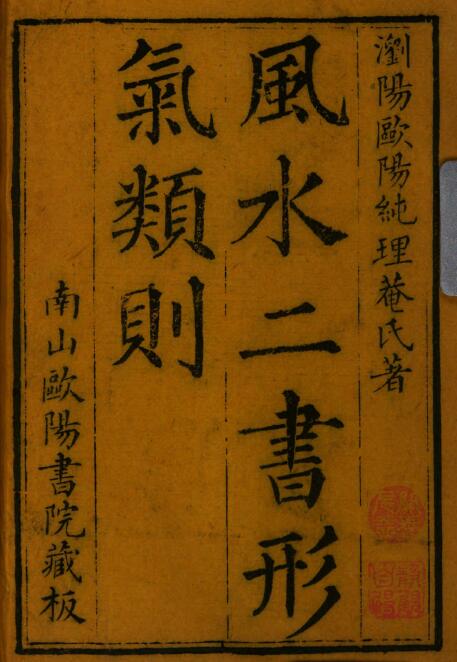 瀏陽歐陽純理菴氏著
風水二書形
氣類則
南山歐陽書院藏板